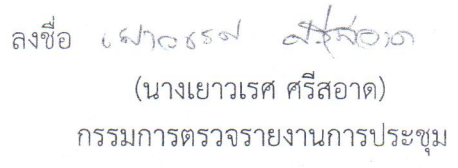 ลงชื่อ เยาวเรศ ศรีสอาด
(นางเยาวเรศ ศรีสอาด)
กรรมการตรวจรายงานการประชุม